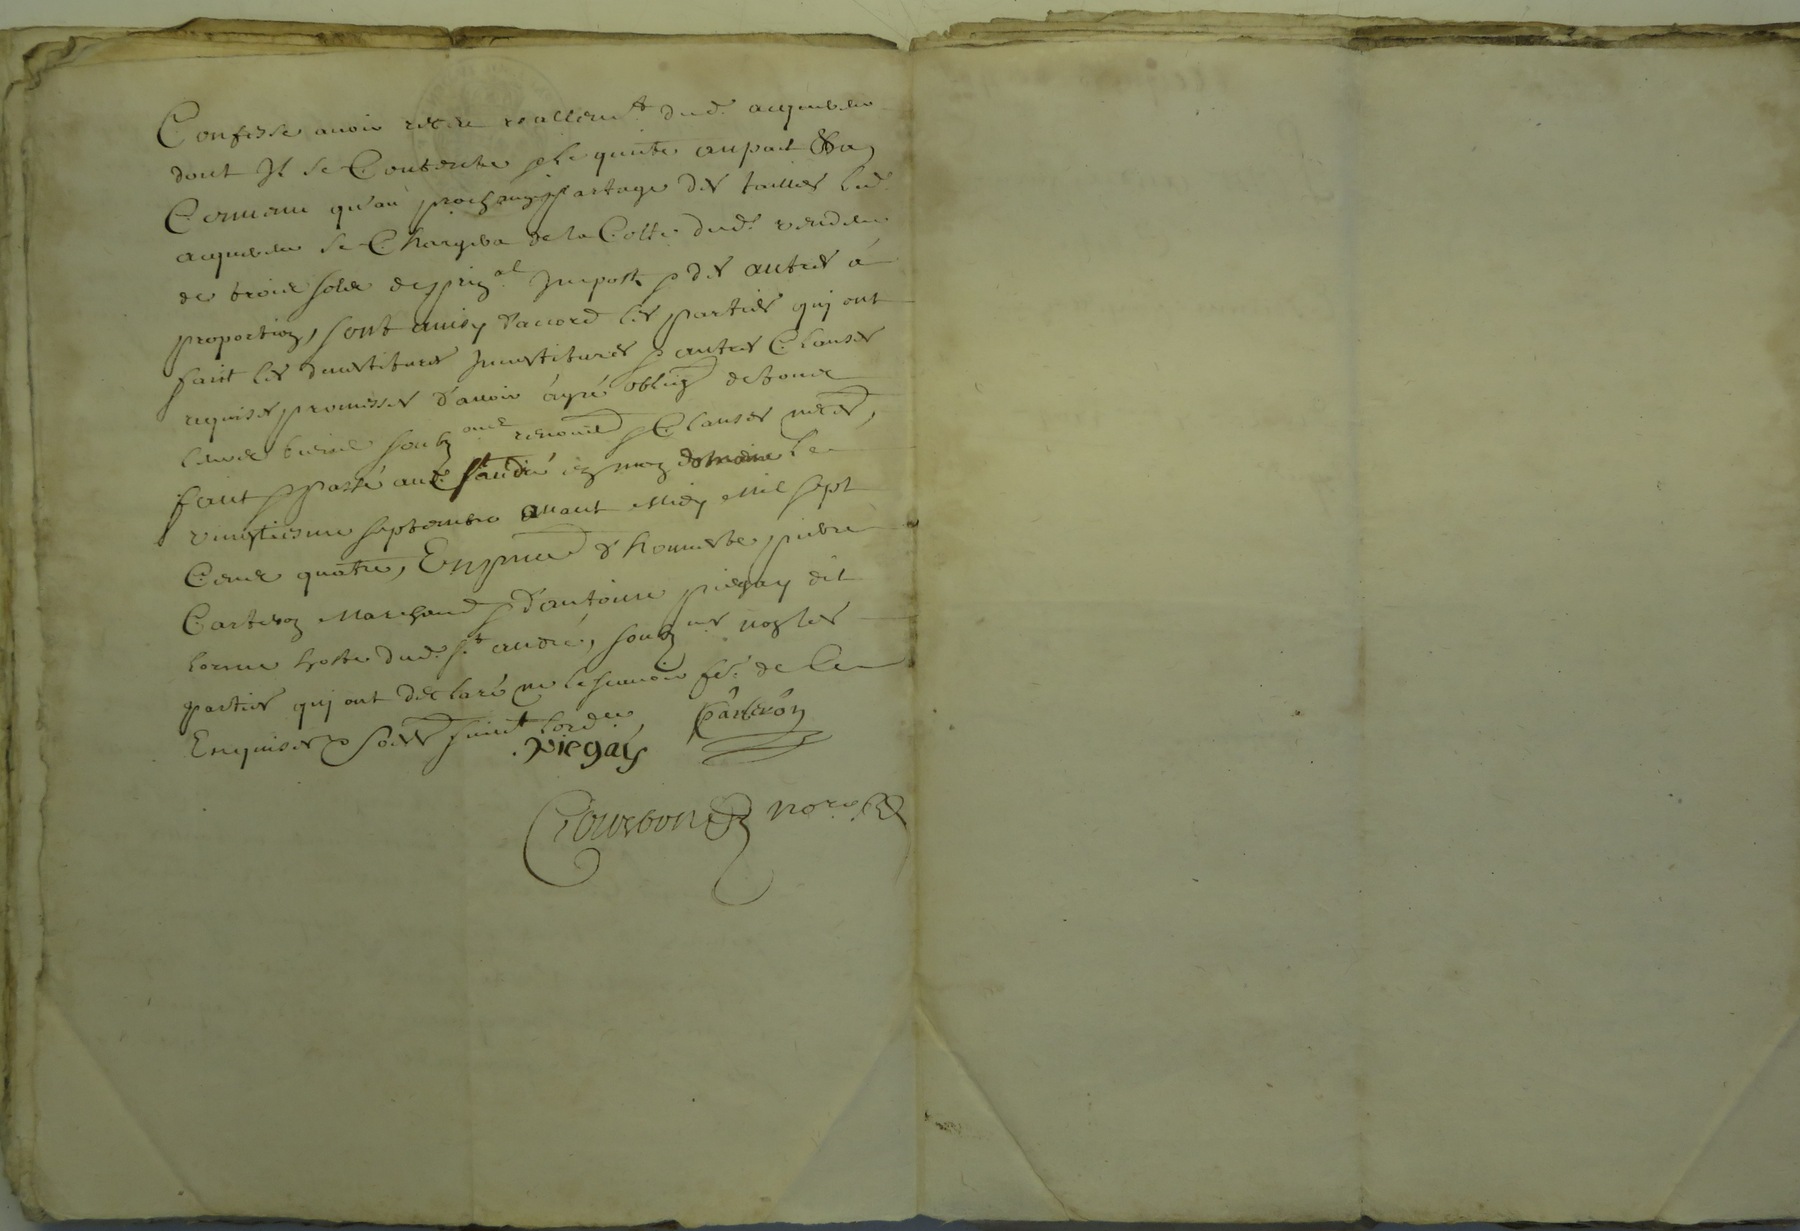 Confesse avoir receu reallemt. dud. acquereur
dont Il se Contente & le quitte aupait
Convenu qu'au prochain partage des tailles led.
acquereur se Chargera de la Cotte dud. vendeur
de trois solz de prin.al Impost & des autres à
proportion, sont ainsy d'accord les parties qui ont
fait les devestitures Investitures & autres Clauses
requises promesses d'avoir agré oblig.
leurs biens soub.ons renon. & Clauses neces.,
faict & passé aud. St andré en mon domicile le
vingtiesme septembre avant Midy Mil sept
Cent quatre, En pnce d'honneste pierre
Carteron Marchand & d'antoine piegay dit
hoste dud. St. andré, soub.nés non les
parties qui ont declaré ne le sçavoir fe. de ce
Enquises & som. suivt. lord.ce,
piegay Carteron
Courbon Nore.